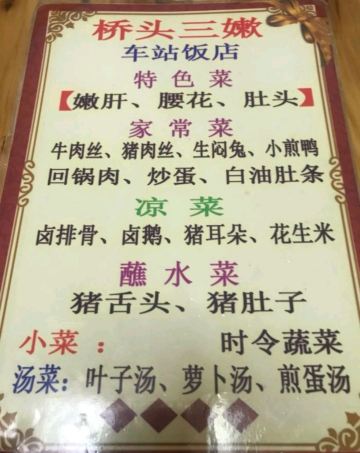 桥头三嫩
车站饭店
特色菜
【嫩肝、腰花、肚头】
家常菜
牛肉丝、猪肉丝、生闷兔、小煎鸭
回锅肉、炒蛋、白油肚条
凉菜
卤排骨、卤鹅、猪耳朵、花生米
蘸水菜
猪舌头、猪肚子
小菜：时令蔬菜
汤菜：叶子汤、萝卜汤、煎蛋汤